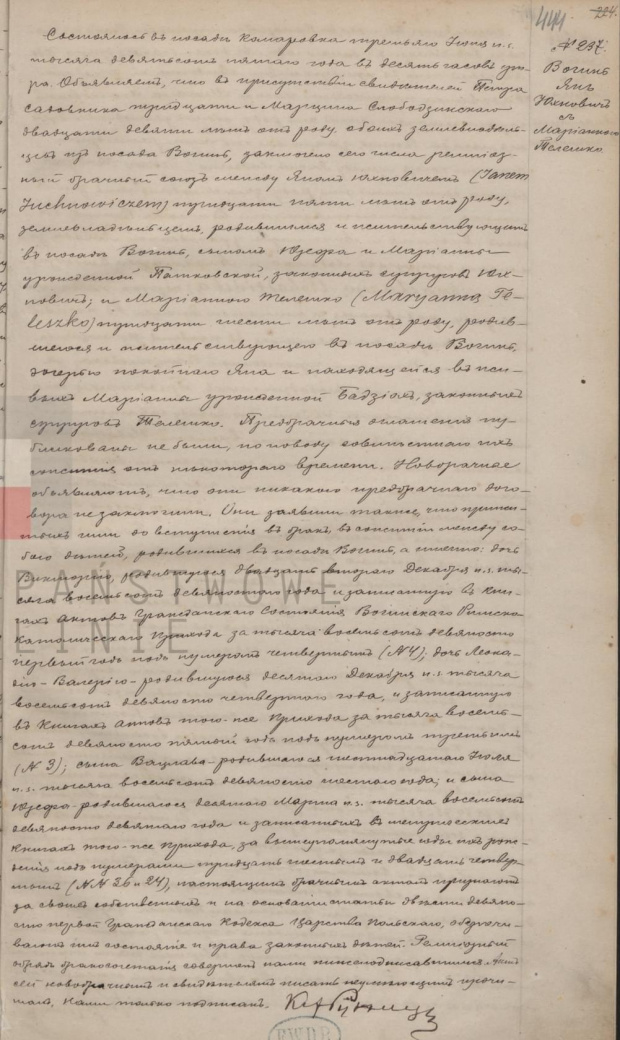 444 224.
№ 237.
Вогинь
Янъ
Юхновичъ
съ
Маріанною
Телешко
Состоялось въ посадѣ Комаровка третьяго Іюня н.с.
тысяча девятьсотъ пятаго года въ десять часовъ ут-
ра. Объявляемъ, что въ присутствіи свидѣтелей Петра
Садовника тридцати и Марцина Слободзинскаго
двадцати девяти лѣтъ отъ роду, обоихъ земле­владѣль-
цевъ изъ посада Вогинь, заключено сего числа религіоз-
ный брачный союзъ между Яномъ Юхновичемъ (Janem
Juchnowiczem) тридцати пяти лѣтъ отъ роду,
землевладѣльцемъ, родившимся и жительствующимъ
въ посадѣ Вогинь, сыномъ Юзефа и Маріанны
урожденной Патковской, законныхъ супруговъ Юх-
новичъ; и Маріанною Телешко (Maryanną Te-
leszko) тридцати шести лѣтъ отъ роду, родив-
шеюся и жительствующею въ посадѣ Вогинь,
дочерью покойнаго Яна и находящейся въ жи-
выхъ Маріанны урожденной Бадзіохъ, законныхъ
супруговъ Телешко. Предбрачныя оглашенія пу-
бликованы не были, по поводу совмѣстнаго ихъ
сожитія отъ нѣкотораго времени. Новобрачные
объявляютъ, что они никакого предбрачнаго дого-
вора не заключили. Они заявили также, что прижи-
тыхъ ими до вступленія въ бракъ, въ сожитіи между со-
бою дѣтей, родившихся въ посадѣ Вогинь, а именно: дочь
Викторію, родившуюся двадцать второго Декабря н.с. ты-
сяча восемьсотъ девяностого года и записанную въ кни-
гахъ Актовъ Гражданскаго Состоянія Вогинскаго Римско-
Католическаго Прихода за тысяча восемьсотъ девяносто
первый годъ подъ нумеромъ четвертымъ (№ 4); дочь Леока-
дію-Валерію - родившуюся десятаго Декабря н.с. тысяча
восемьсотъ девяносто четвертаго года, и записанную
въ книгахъ актовъ того-же Прихода за тысяча восемь-
сотъ девяносто пятый годъ подъ нумеромъ третьимъ
(№ 3); сына Вацлава - родившагося шестнадцатаго Іюля
н.с. тысяча восемьсотъ девяносто шестого года; и сына
Юзефа - родившагося десятаго Марта н.с. тысяча восемьсотъ
девяносто девятаго года и записанныхъ въ
книгахъ того-же Прихода, за вышеупомянутые годы ихъ рож-
денія подъ нумерами тридцать шестымъ и двадцать четвер-
тымъ (№№ 36 и 24), настоящимъ брачнымъ актомъ признаютъ
за своихъ собственныхъ и на основаніи статьи двѣсти девяно-
сто первой Гражданскаго Кодекса Царства Польскаго, обезпечи-
ваютъ имъ состояніе и права законныхъ дѣтей. Религіозный
обрядъ бракосочетанія совершонъ нами нижеподписавшимся. Актъ
сей новобрачнымъ и свидѣтелямъ писать неумѣющимъ прочи-
танъ, Нами только подписанъ.
PAŃSTWOWE
LINIE